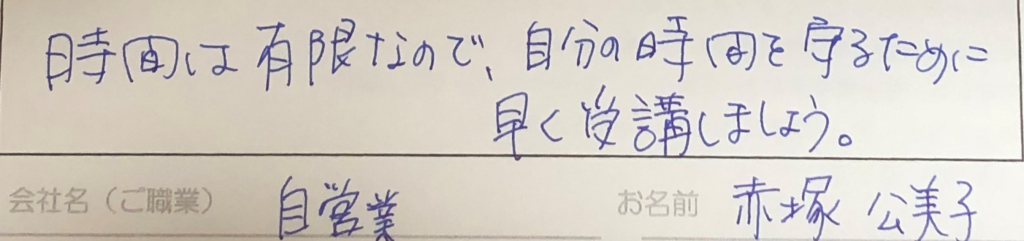 時間は有限なので、自分の時間を守るために
早く受講しましょう。
会社名（ご職業） 自営業 お名前 赤塚 公美子